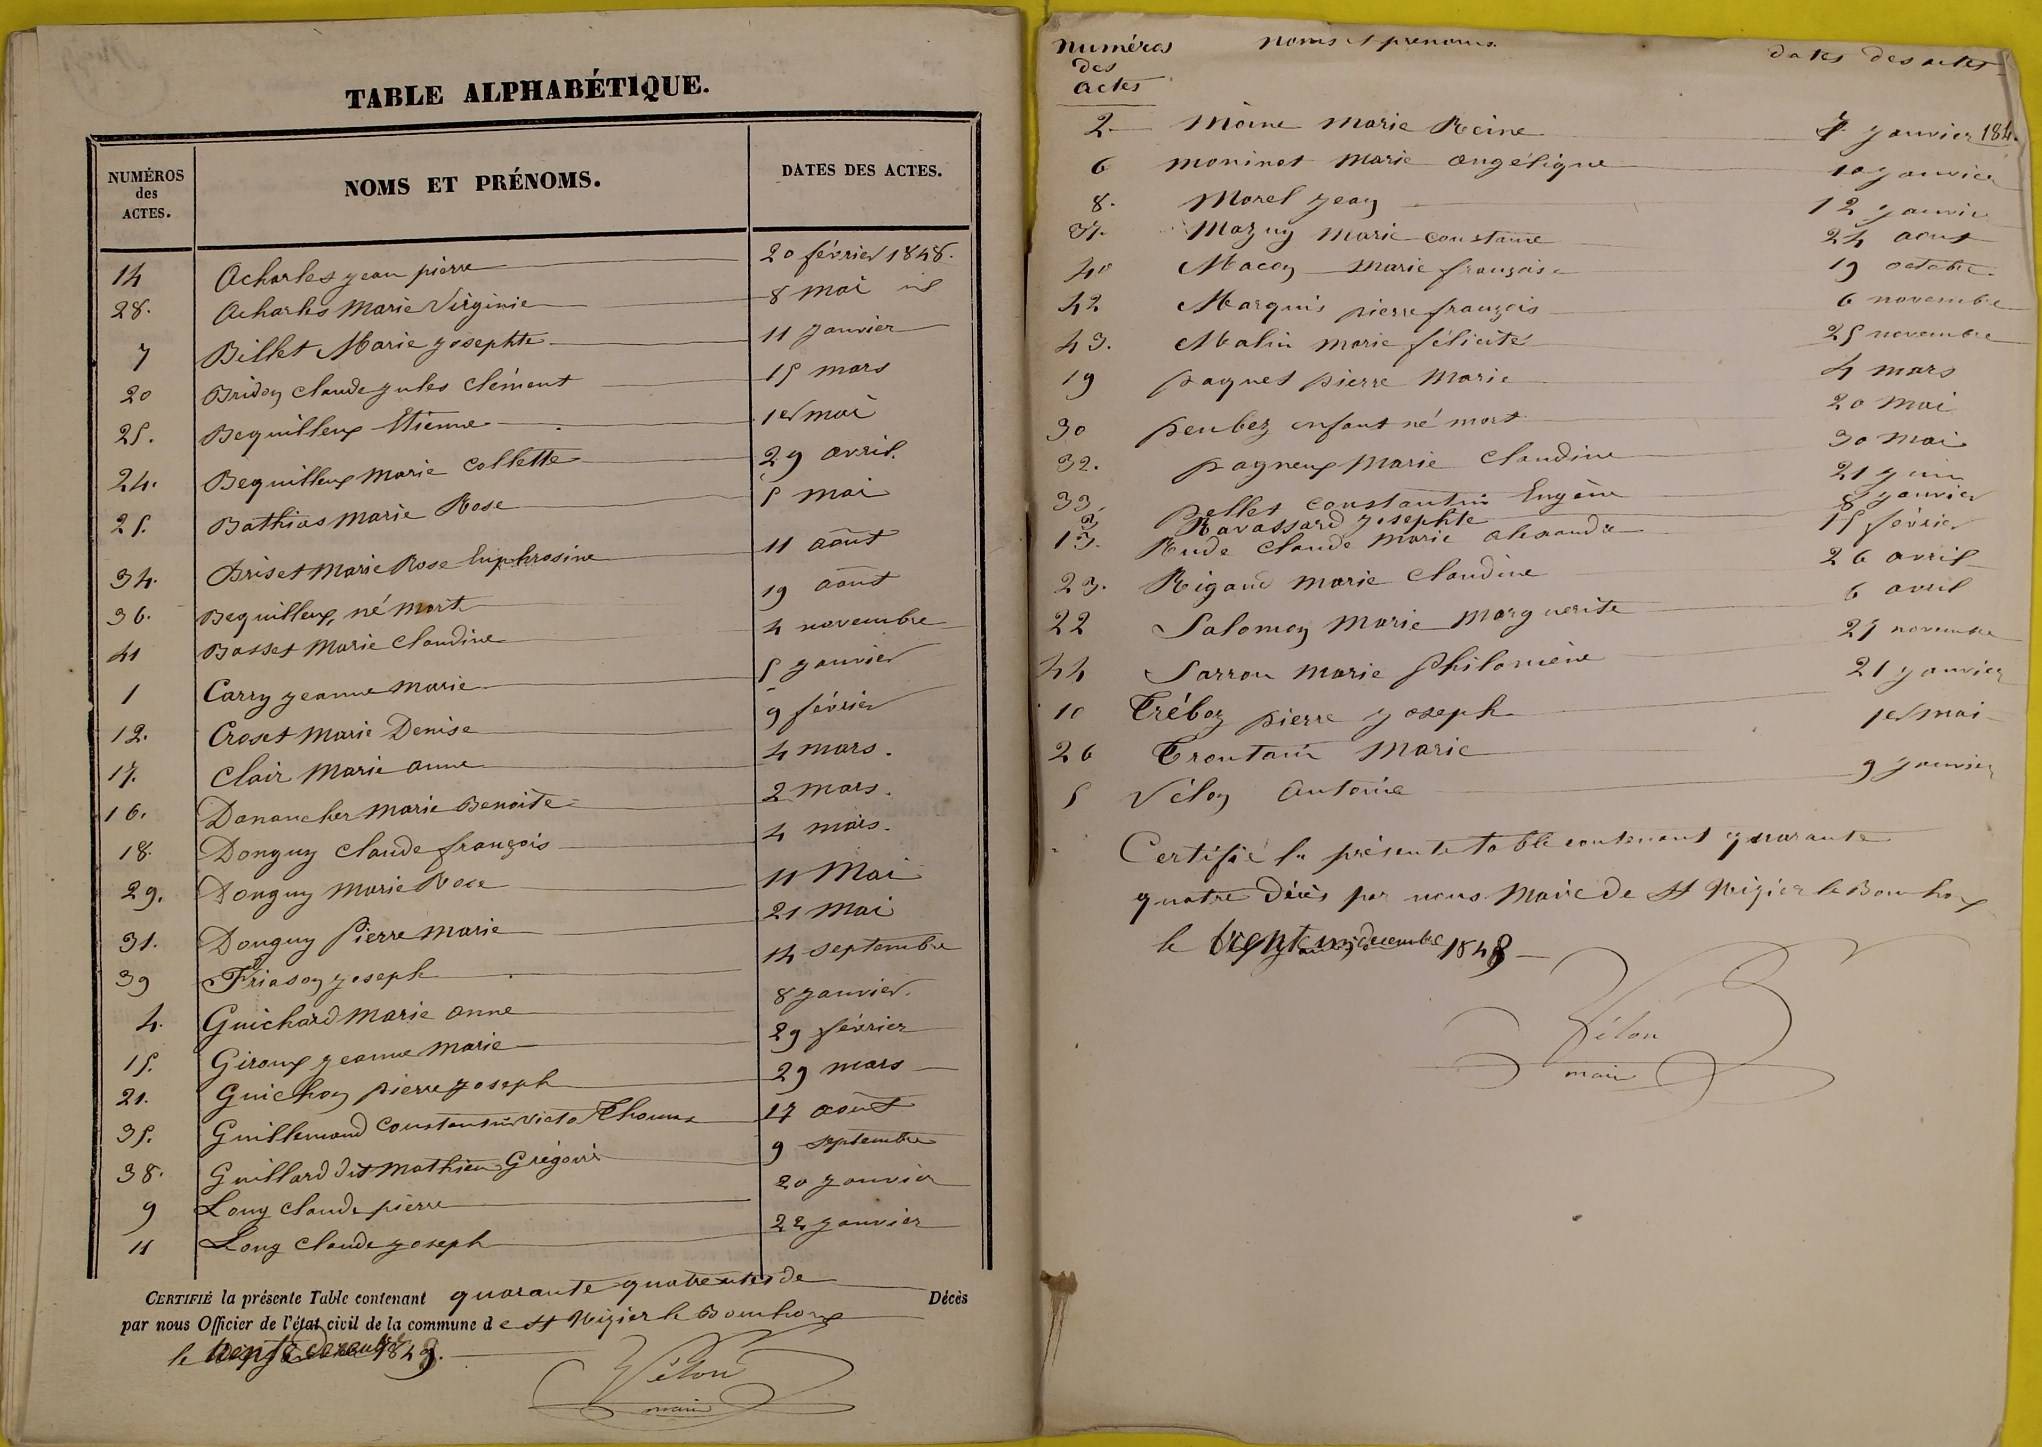 TABLE ALPHABÉTIQUE.
NUMÉROS des ACTES. NOMS ET PRÉNOMS. DATES DES ACTES.
14 Acharles jean pierre 20 février 1848.
28. Acharles Marie Virginie 8 mai
7 Billet Marie josephte 11 janvier
20 Bridon claude jules clément 15 mars
25. Bequilleux Etienne 1er mai
24. Bequilleux marie collette 29 avril.
25. Bathias marie Rose 5 mai
34. Briset Marie Rose Euphrosine 11 août
36. Bequilleux, né mort 19 août
41 Basset Marie Claudine 4 novembre
1 Carry jeanne marie 5 janvier
12. Croset marie Denise 9 février
17. Clair Marie anne 4 mars.
16. Danancher marie Benoite 2 mars.
18. Donguy claude françois 4 mars.
29. Donguy marie Rose 11 Mai
31. Donguy Pierre marie 21 mai
39 Friason joseph 14 septembre
4. Guichard marie anne 8 janvier.
15. Giroux jeanne marie 29 février
21. Guichon pierre joseph 29 mars
35. Guillemaud Constantin victor Thomas 17 août
38. Guillard dit mathieu Grégoire 9 septembre
9 Long claude pierre 20 janvier
11 Long Claude joseph 22 janvier
CERTIFIÉ la présente Table contenant quarante quatre actes de Décès
par nous Officier de l'état civil de la commune de St Nizier le Bouchoux
le trente 1848.
Vélon
maire
numéros noms et prénoms dates des actes
des
actes
2. Moine marie Reine 7 janvier 184
6 moninot marie angélique 10 janvier
8. Morel jean 12 janvier
37. Mazuy marie constance 24 aout
40 Macon Marie françoise 19 octobre
42 Marquis pierre françois 6 novembre
43. Malin marie félicité 25 novembre
19 paquet pierre Marie 4 mars
30 peubez enfant né mort 20 mai
32. pagneux Marie Claudine 30 mai
33. pellet constantin Eugène 21 juin
3. Ravassard josephte 8 janvier
13. Rude Claude marie alexandre 15 février
23. Rigaud marie Claudine 26 avril
22 Salomon Marie Marguerite 6 avril
44 Sarron marie Philomène 27 novembre
10 Tréboz pierre joseph 21 janvier
26 Troutain Marie 1er mai
5 Vélon Antoine 9 janvier
Certifié la présente table contenant quarante
quatre Décès par nous Maire de St Nizier le Bouchoux
le trente un décembre 1848
Vélon
maire